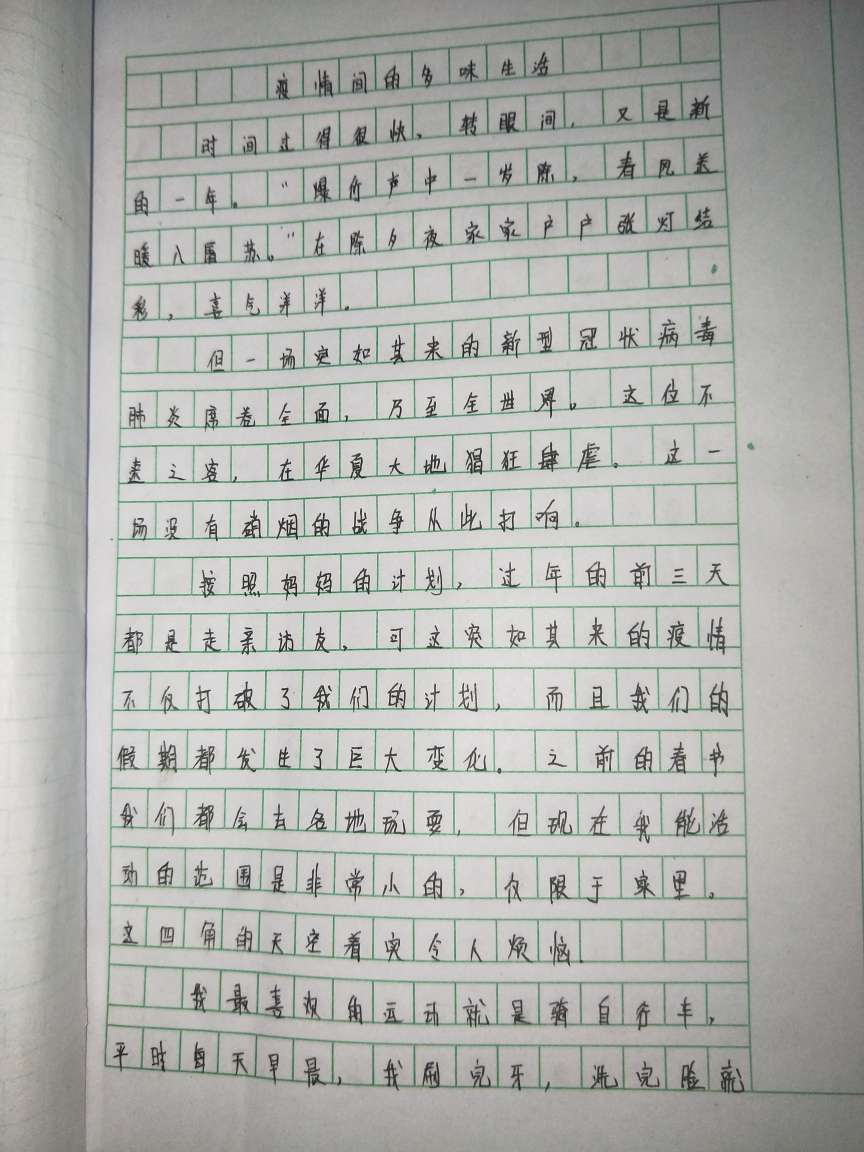 疫情间的多味生活
时间过得很快、转眼间，又是新
的一年。“爆竹声中一岁除，春风送
暖入屠苏。”在除夕夜家家户户张灯结
彩，喜气洋洋。
但一场突如其来的新型冠状病毒
肺炎席卷全面，乃至全世界。这位不
速之客，在华夏大地猖狂肆虐。这一
场没有硝烟的战争从此打响。
按照妈妈的计划，过年的前三天
都是走亲访友，可这突如其来的疫情
不仅打破了我们的计划，而且我们的
假期都发生了巨大变化。之前的春节
我们都会去各地玩耍，但现在我能活
动的范围是非常小的，仅限于家里。
这四角的天空着实令人烦恼
我最喜欢的运动就是骑自行车，
平时每天早晨，我刷完牙，洗完脸就